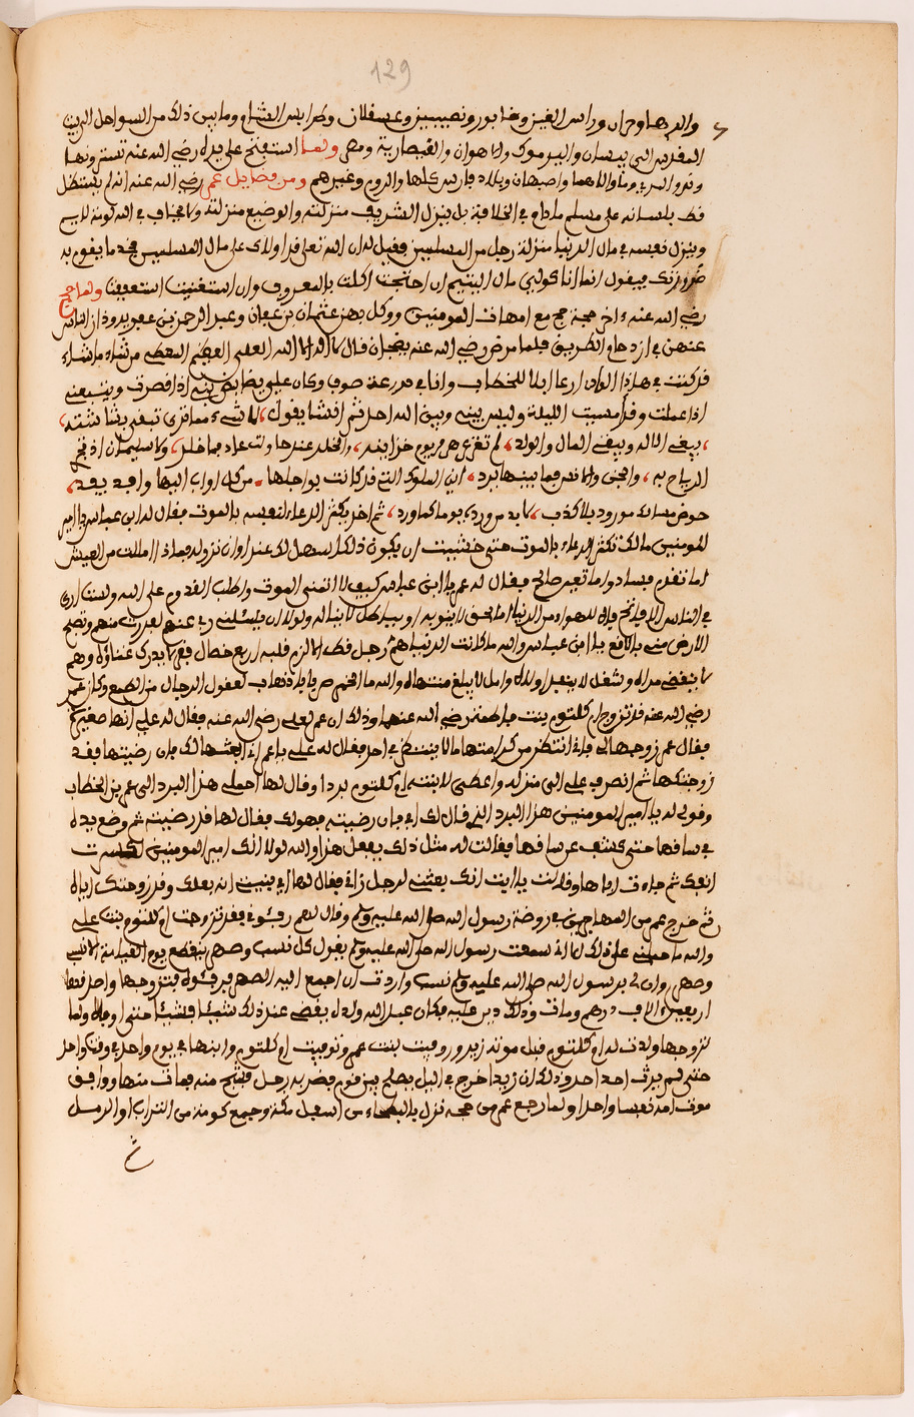 129
والرها وحران وراس العين وخابور ونصيبين وعسقلان وطرابلس الشام وما بين ذلك من السواحل الى بيت
المقدس الى بيسان واليرموك والاهوان والقيصارية ومصر ولما استفتح على يده رضي الله عنه تستر ونها
وند والري وما والاهما واصبهان وبلاد فارس كلها والروم وغيرهم ومن فضايل عمر رضي الله عنه انه لم يستطل
قط بلسانه على مسلم ما دام في الخلافة بل ينزل الشريف منزلته والوضيع منزلته ولا يخاف في الله لومة لايم
وينزل نفسه في مال الدنيا منزلة رجل من المسلمين فقيل له ان الله تعلى قد اولاك على مال المسلمين فخذ ما يقوم به
ضرورتك فيقول انما انا كولي مال اليتيم ان احتجت اكلت بالمعروف وان استغنيت استعففت ولما حج
رضي الله عنه اخر حجة حج مع امهات المومنين ووكل بهن عثمان بن عفان وعبد الرحمن بن عوف يذودان الناس
عنهن في ازدحام الطريق فلما مر ضي رضي الله عنه بضجنان قال لا اله الا الله العلي العظيم المعطي من شاء ما شاء
قد كنت في هذا الوادي ارعا ابلا للخطاب وانا في مدرعة صوف وكان عليّ فظا يضربني اذا قصرت ويتعبني
اذا عملت وقد امسيت الليلة وليس بيني وبين الله احد ثم انشا يقول لا شيء مما ترى تبقى بشاشته
يبقى الاله ويفنى المال والولد لم تغن عن هرمز يوم خزاينه والخلد عندها ولت عاد فما خلدوا ولا سليمان اذ تجري
الرياح به والجن والانس فيما بينها برد اين الملوك التي قد كانت نواهلها من كل اوب اليها وافد يفد
حوض هنالك مورود بلا كذب لا بد من ورده يوما كما ورد ثم اخذ يكثر الدعاء لنفسه بالموت فقال له ابن عباس يا امير
المومنين مالك تكثر الدعاء بالموت حتى خشيت ان يكون ذلك اسهل لك عند اوان نزوله فماذا مللت من العيش
اما تقدم فسادوا ما تعين صالح فقال له عمر يا ابن عباس كيف لا اتمنى الموت واطلب القدوم على الله ولست ارى
في الناس
الارض مني بلاقع يا ابن عباس والله ما كانت الدنيا هم رجل قط الا لزم قلبه اربع خصال فقر لا يدرك غناؤه وهم
لا ينقضي مداه وشغل لا ينفد اولاه وامل لا يبلغ منتهاه والله ما الخمر صرفا باذهاب لعقول الرجال من الطمع وكان عمر
رضي الله عنه قد تزوج ام كلثوم بنت فاطمة رضي الله عنهما وذلك ان عمر لعلي رضي الله عنه فقال له علي انها صغيرة
فقال عمر زوجنيها فاني انتظر من كرامتها ما لا ينتظر احد فقال له علي يا عمر انا ابعثها لك فان رضيتها فقد
زوجتكها ثم انصرف علي الى منزله واعطى لابنته ام كلثوم بردا وقال لها احمل هذا البرد الى عمر بن الخطاب
وقولي له يا امير المومنين هذا البرد الذي قال لك ابي فان رضيته فهو لك فقال لها قد رضيته ثم وضع يده
في ساقها حتى كشف عن ساقها فقالت له مثل ذلك يفعل هذا والله لولا انك امير المومنين لكسرت
انفك ثم جاءت اباها وقالت يا ابت انك بعثتني لرجل زاني فقال لها ابي بنيت انه بعلك وقد زوجتك اياه
ثم خرج عمر من المهاجرين في روضة رسول الله صلى الله عليه وسلم وقال لهم رفئوني فقد تزوجت ام كلثوم بنت علي
والله ما حملني على ذلك الا اني سمعت رسول الله صلى الله عليه وسلم يقول كل نسب وصهر ينقطع يوم القيامة الا نسبي
وصهري وان لي برسول الله صلى الله عليه وسلم نسب واردت ان اجمع اليه الصهر فرفئوني فتزوجها واصدقها
اربعين الف درهم ومات وذلك دين عليه فكان عبد الله ولده يقضي عنه ذلك شيئا فشيئا حتى اوفاه ولما
تزوجها ولدت له ام كلثوم قبل موته زيد ورقية بنت عمر وتوفيت ام كلثوم وابنها في يوم واحد في وقت واحد
حتى لم يرث احد احد وذلك ان زيدا خرج في اليل يصلح بين قوم فضربه رجل فشج منه فمات منها ووافق
موت امه نفسا واحدا ولما رجع عمر من حجه نزل بالبطحاء من اسفل مكة وجمع كومة من التراب او الرمل
ثم